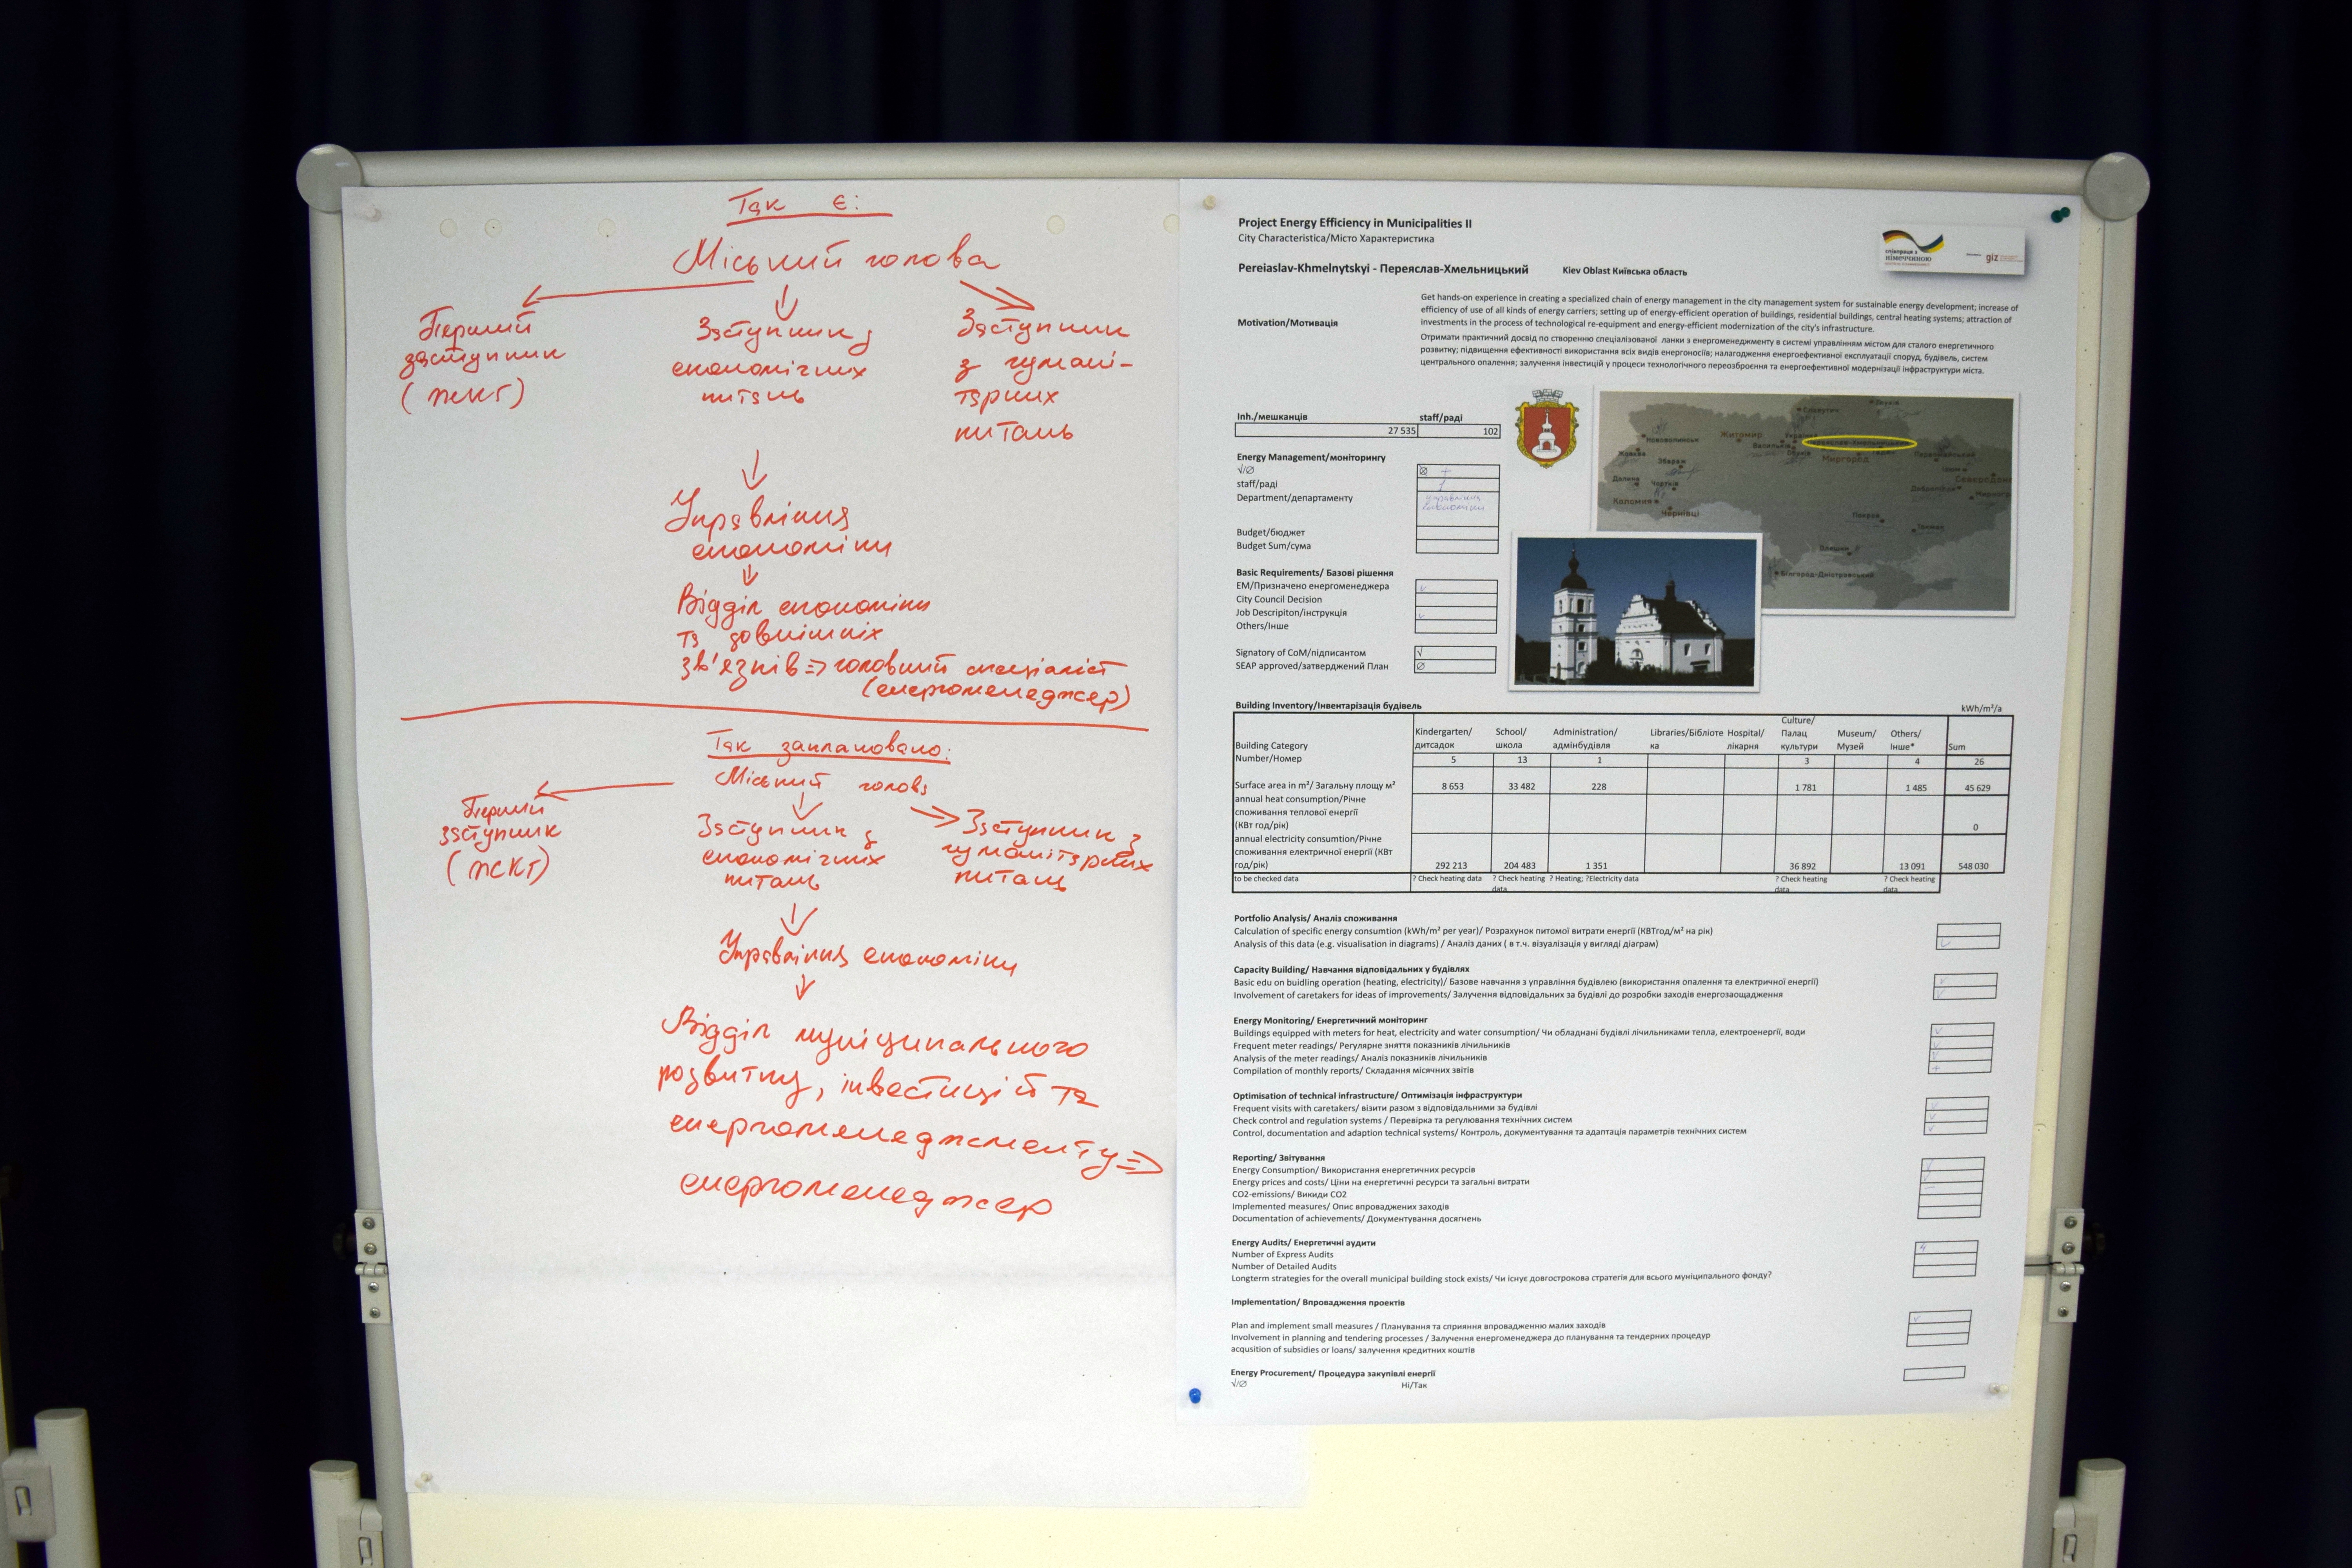 Так є:
Міський голова
Перший
заступник
(ЖКГ)
Заступник з
економічних
питань
Заступник
з гумані-
тарних
питань
Управління
економіки
Відділ економіки
та зовнішніх
зв'язків => головний спеціаліст
(енергоменеджер)
Так заплановано:
Міський голова
Перший
заступник
(ЖКГ)
Заступник з
економічних
питань
Заступник з
гуманітарних
питань
Управління економіки
Відділ муніципального
розвитку, інвестицій та
енергоменеджменту =>
енергоменеджер
Project Energy Efficiency in Municipalities II
City Characteristica/Місто Характеристика
співпраця з
німеччиною
giz
Pereiaslav-Khmelnytskyi - Переяслав-Хмельницький Kiev Oblast Київська область
Motivation/Мотивація
Get hands-on experience in creating a specialized chain of energy management in the city management system for sustainable energy development; increase of
efficiency of use of all kinds of energy carriers; setting up of energy-efficient operation of buildings, residential buildings, central heating systems; attraction of
investments in the process of technological re-equipment and energy-efficient modernization of the city's infrastructure.
Отримати практичний досвід по створенню спеціалізованої ланки з енергоменеджменту в системі управлінням містом для сталого енергетичного
розвитку; підвищення ефективності використання всіх видів енергоносіїв; налагодження енергоефективної експлуатації споруд, будівель, систем
центрального опалення; залучення інвестицій у процеси технологічного переозброєння та енергоефективної модернізації інфраструктури міста.
Inh./мешканців staff/раді
27 535 102
Energy Management/моніторингу
√/∅ ∅ +
staff/раді 1
Department/департаменту управління
економіки
Budget/бюджет
Budget Sum/сума
Basic Requirements/ Базові рішення
EM/Призначено енергоменеджера √
City Council Decision
Job Descripiton/інструкція √
Others/Інше
Signatory of CoM/підписантом √
SEAP approved/затверджений План ∅
Житомир
Миргород
Коломия
Чернівці
Білгород-Дністровський
Building Inventory/Інвентарізація будівель kWh/m²/a
Building Category Kindergarten/ дитсадок School/ школа Administration/ адмінбудівля Libraries/Бібліоте ка Hospital/ лікарня Culture/ Палац культури Museum/ Музей Others/ Інше* Sum
Number/Номер 5 13 1 3 4 26
Surface area in m²/ Загальну площу м² 8 653 33 482 228 1 781 1 485 45 629
annual heat consumption/Річне
споживання теплової енергії
(КВт год/рік) 0
annual electricity consumtion/Річне
споживання електричної енергії (КВт
год/рік) 292 213 204 483 1 351 36 892 13 091 548 030
to be checked data ? Check heating data ? Check heating data ? Heating; ?Electricity data ? Check heating data ? Check heating data
Portfolio Analysis/ Аналіз споживання
Calculation of specific energy consumtion (kWh/m² per year)/ Розрахунок питомої витрати енергії (КВТгод/м² на рік)
Analysis of this data (e.g. visualisation in diagrams) / Аналіз даних ( в т.ч. візуалізація у вигляді діаграм) √
Capacity Building/ Навчання відповідальних у будівлях
Basic edu on buidling operation (heating, electricity)/ Базове навчання з управління будівлею (використання опалення та електричної енергії) √
Involvement of caretakers for ideas of improvements/ Залучення відповідальних за будівлі до розробки заходів енергозаощадження √
Energy Monitoring/ Енергетичний моніторинг
Buildings equipped with meters for heat, electricity and water consumption/ Чи обладнані будівлі лічильниками тепла, електроенергії, води √
Frequent meter readings/ Регулярне зняття показників лічильників √
Analysis of the meter readings/ Аналіз показників лічильників √
Compilation of monthly reports/ Складання місячних звітів +
Optimisation of technical infrastructure/ Оптимізація інфраструктури
Frequent visits with caretakers/ візити разом з відповідальними за будівлі √
Check control and regulation systems / Перевірка та регулювання технічних систем √
Control, documentation and adaption technical systems/ Контроль, документування та адаптація параметрів технічних систем √
Reporting/ Звітування
Energy Consumption/ Використання енергетичних ресурсів √
Energy prices and costs/ Ціни на енергетичні ресурси та загальні витрати √
CO2-emissions/ Викиди CO2 –
Implemented measures/ Опис впроваджених заходів
Documentation of achievements/ Документування досягнень
Energy Audits/ Енергетичні аудити
Number of Express Audits 4
Number of Detailed Audits
Longterm strategies for the overall municipal building stock exists/ Чи існує довгострокова стратегія для всього муніципального фонду?
Implementation/ Впровадження проектів
Plan and implement small measures / Планування та сприяння впровадженню малих заходів √
Involvement in planning and tendering processes / Залучення енергоменеджера до планування та тендерних процедур
acqusition of subsidies or loans/ залучення кредитних коштів
Energy Procurement/ Процедура закупівлі енергії
√/∅ Ні/Так